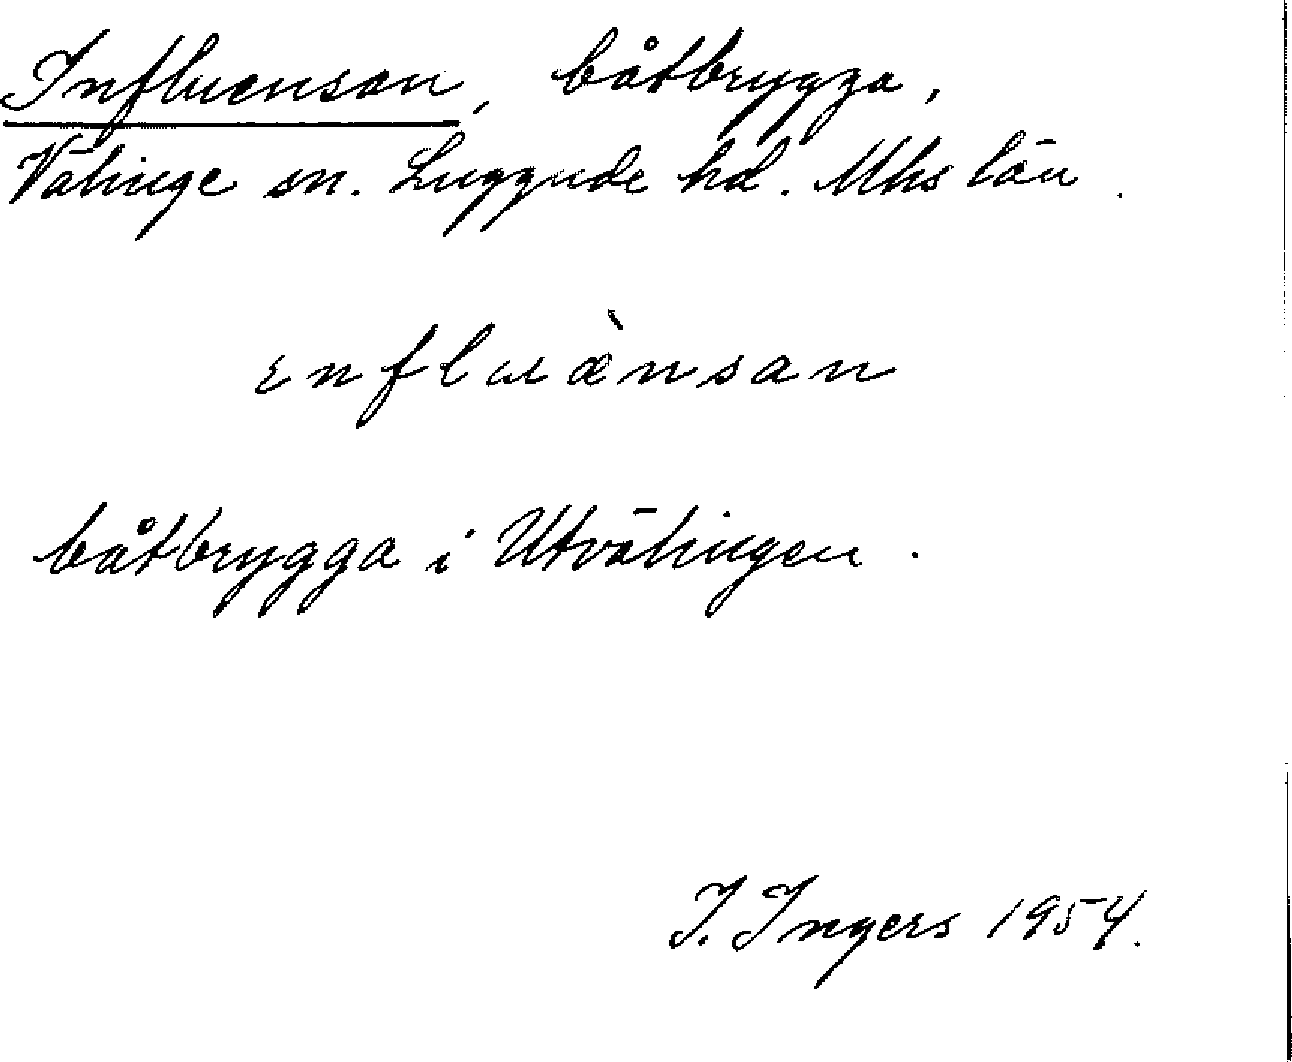 Influensan, båtbrygga,
Välinge sn. Luggude hd. Mhs län.
ɛnflɯæ̀nsan
båtbrygga i Utvälingen.
I. Ingers 1954.